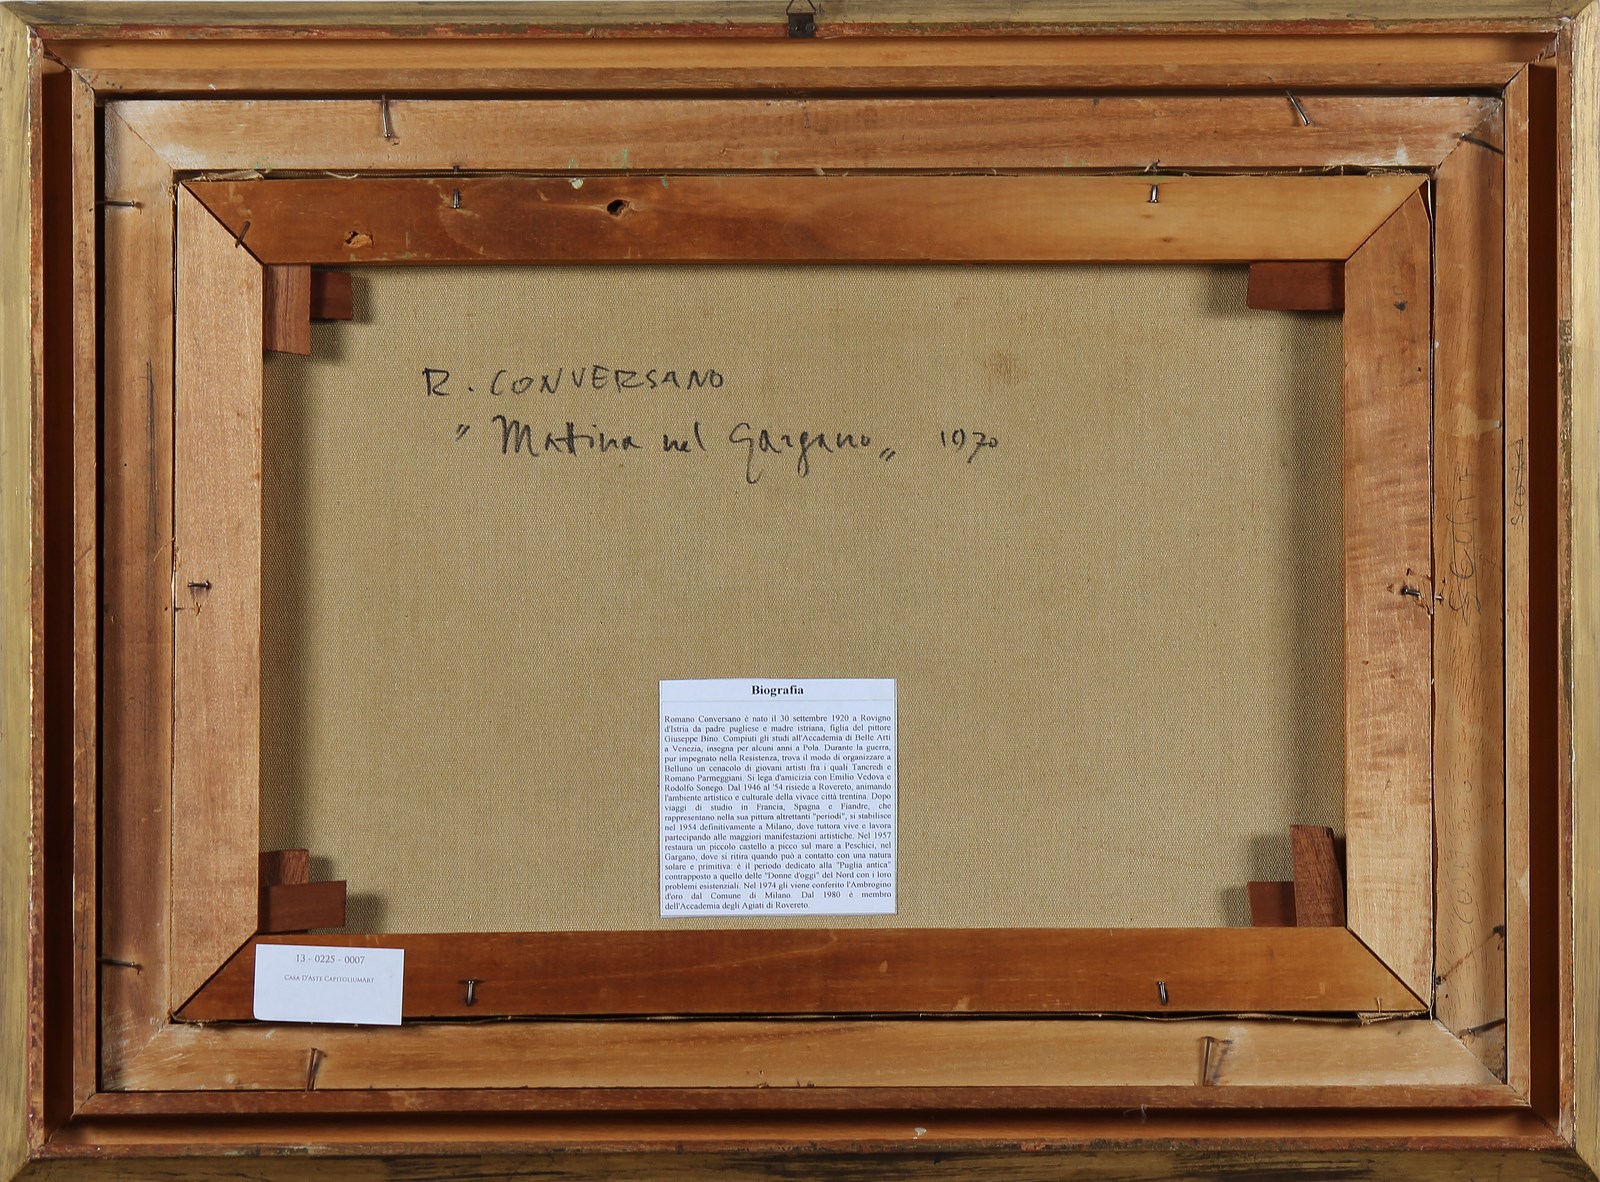 R. CONVERSANO
" Mattina nel Gargano „ 1970
Biografia
Romano Conversano è nato il 30 settembre 1920 a Rovigno
d'Istria da padre pugliese e madre istriana, figlia del pittore
Giuseppe Bino. Compiuti gli studi all'Accademia di Belle Arti
a Venezia, insegna per alcuni anni a Pola. Durante la guerra,
pur impegnato nella Resistenza, trova il modo di organizzare a
Belluno un cenacolo di giovani artisti fra i quali Tancredi e
Romano Parmeggiani. Si lega d'amicizia con Emilio Vedova e
Rodolfo Sonego. Dal 1946 al '54 risiede a Rovereto, animando
l'ambiente artistico e culturale della vivace città trentina. Dopo
viaggi di studio in Francia, Spagna e Fiandre, che
rappresentano nella sua pittura altrettanti "periodi", si stabilisce
nel 1954 definitivamente a Milano, dove tuttora vive e lavora
partecipando alle maggiori manifestazioni artistiche. Nel 1957
restaura un piccolo castello a picco sul mare a Peschici, nel
Gargano, dove si ritira quando può a contatto con una natura
solare e primitiva: è il periodo dedicato alla "Puglia antica"
contrapposto a quello delle "Donne d'oggi" del Nord con i loro
problemi esistenziali. Nel 1974 gli viene conferito l'Ambrogino
d'oro dal Comune di Milano. Dal 1980 è membro
dell'Accademia degli Agiati di Rovereto.
13 - 0225 - 0007
CASA D'ASTE CAPITOLIUMART